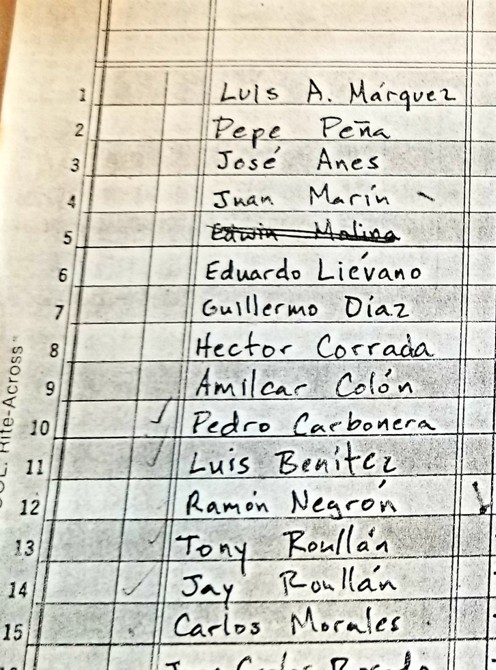 1 Luis A. Márquez
2 Pepe Peña
3 José Anes
4 Juan Marín
5 Edwin Molina
6 Eduardo Liévano
7 Guillermo Díaz
8 Hector Corrada
9 Amilcar Colón
10 Pedro Carbonera
11 Luis Benítez
12 Ramón Negrón
13 Tony Roullán
14 Jay Roullán
15 Carlos Morales
Rite-Across